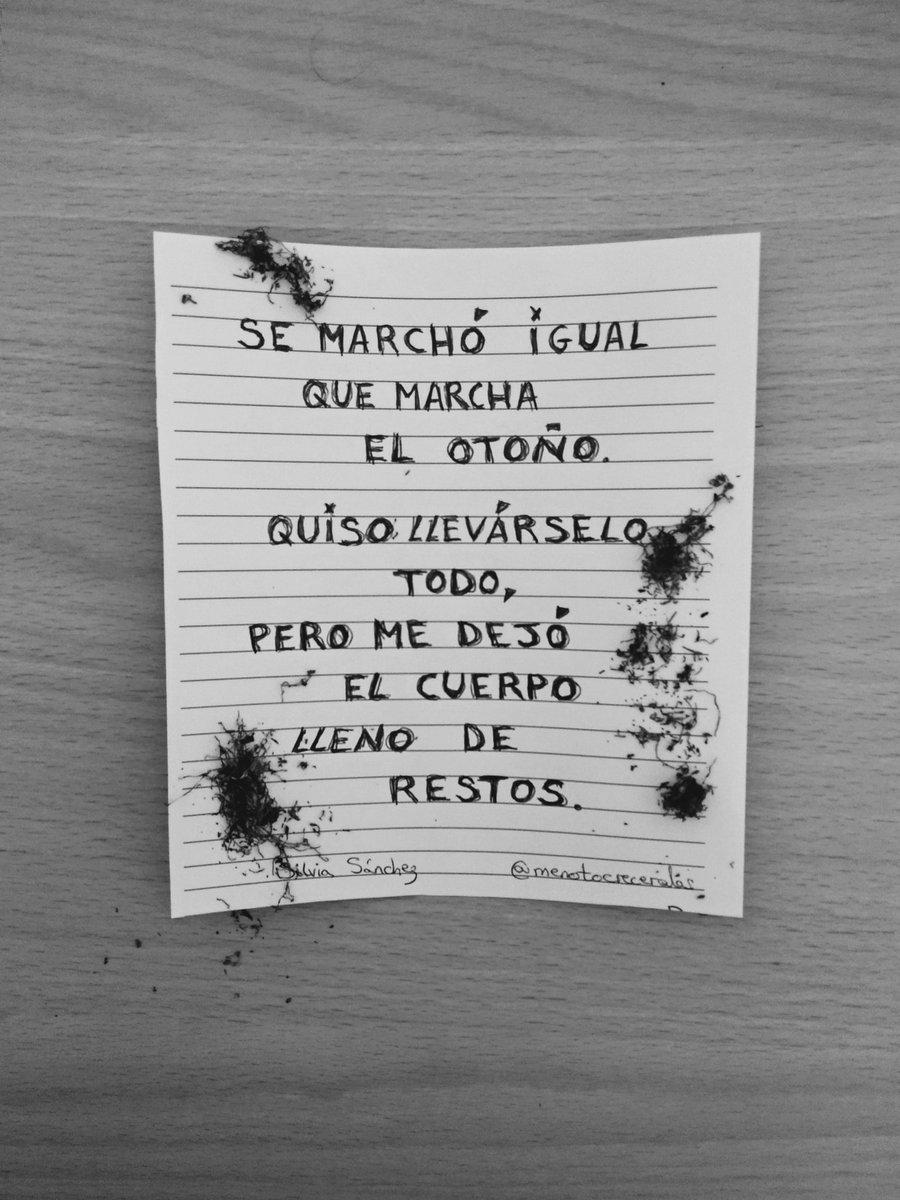 SE MARCHÓ IGUAL
QUE MARCHA
EL OTOÑO.
QUISO LLEVÁRSELO
TODO,
PERO ME DEJÓ
EL CUERPO
LLENO DE
RESTOS.
Silvia Sánchez @menotocreceralas